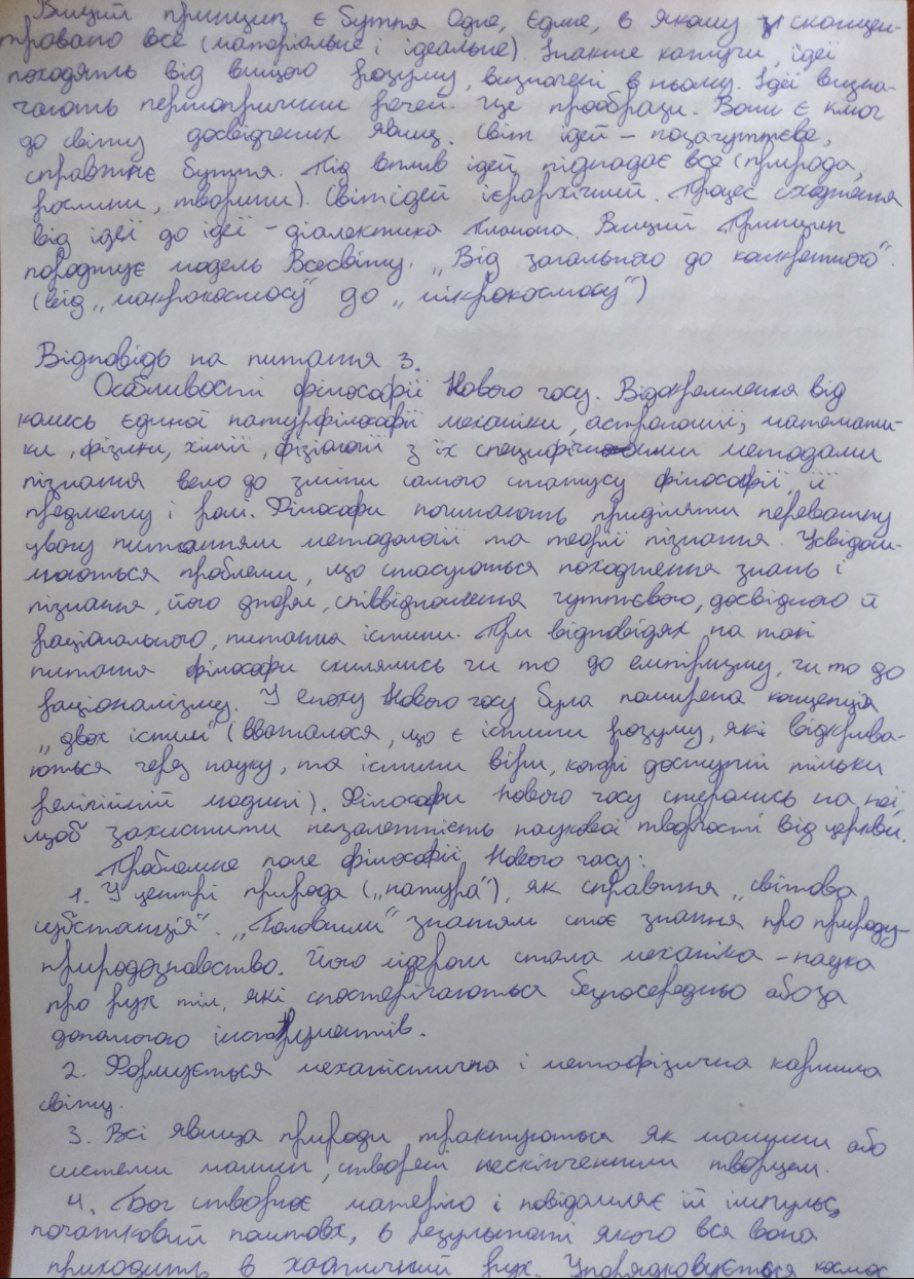 Вищий принцип є буття Одне, Єдине, в якому сконцен-
тровано все (матеріальне і ідеальне). Інакше кажучи, ідеї
походять від вищого розуму, визначені в ньому. Ідеї визна-
чають першопричини речей. Це прообрази. Вони є ключ
до світу досвідчених явищ. Світ ідей – позачуттєве,
справжнє буття. Під вплив ідей підпадає все (природа,
рослини, тварини). Світ ідей ієрархічний. Процес сходження
від ідеї до ідеї – діалектика Платона. Вищий Принцип
породжує модель Всесвіту. „Від загального до конкретного".
(від „макрокосмосу" до „мікрокосмосу")
Відповідь на питання 3.
Особливості філософії Нового часу. Відокремлення від
колись єдиної натурфілософії механіки, астрономії, математи-
ки, фізики, хімії, фізіології з їх специфічними методами
пізнання вело до зміни самого статусу філософії, її
предмету і ролі. Філософи починають приділяти переважну
увагу питанням методології та теорії пізнання. Усвідом-
люються проблеми, що стосуються походження знань і
пізнання, його джерел, співвідношення чуттєвого, досвідного й
раціонального, питання істини. При відповідях на такі
питання філософи схилялись чи то до емпіризму, чи то до
раціоналізму. У епоху Нового часу була поширена концепція
„двох істин" (вважалося, що є істини розуму, які відкрива-
ються через науку, та істини віри, котрі доступні тільки
релігійній людині). Філософи Нового часу спирались на неї,
щоб захистити незалежність наукової творчості від церкви.
Проблемне поле філософії Нового часу:
1. У центрі природа („натура"), як справжня „світова
субстанція". „Головним" знанням стає знання про природу-
природознавство. Його лідером стала механіка – наука
про рух тіл, які спостерігаються безпосередньо або за
допомогою інструментів.
2. Формується механістична і метафізична картина
світу.
3. Всі явища природи трактуються як машини або
системи машин, створені нескінченним творцем.
4. Бог створює матерію і повідомляє їй імпульс,
початковий поштовх, в результаті якого вся вона
приходить в хаотичний рух. Упорядковується космос